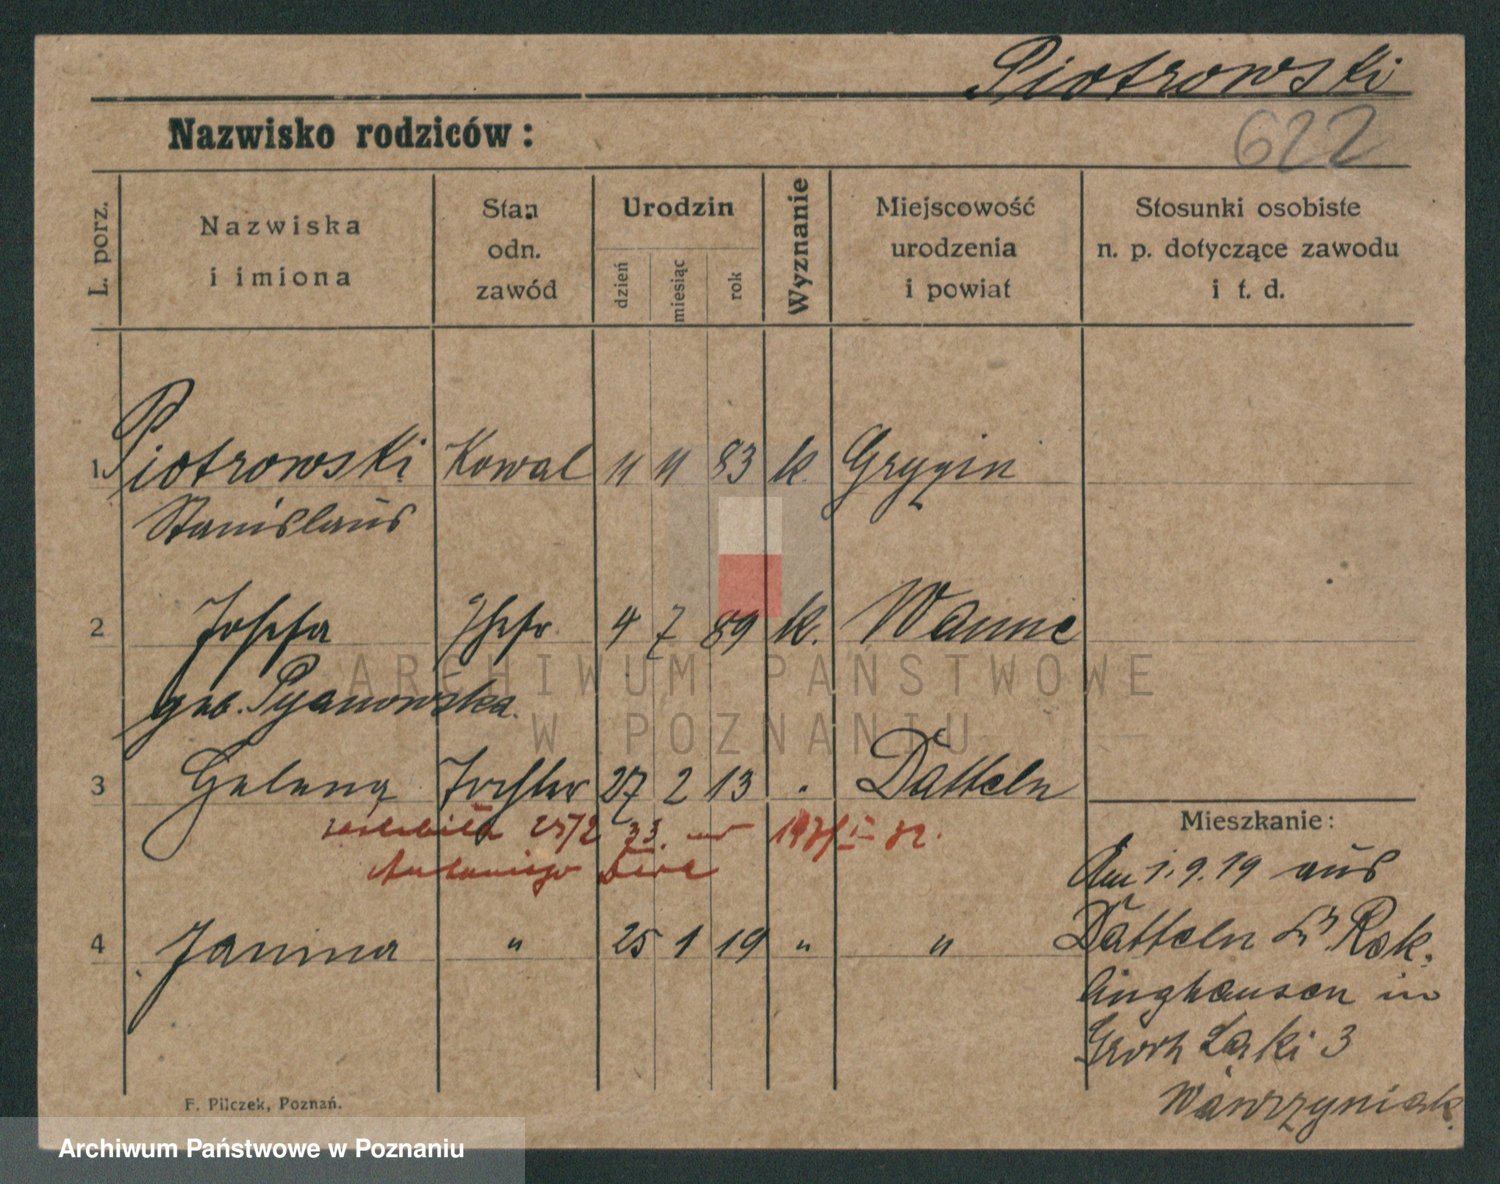 Piotrowski
622
Nazwisko rodziców:
L. porz.
Nazwiska
i imiona
Stan
odn.
zawód
Urodzin
dzień
miesiąc
rok
Wyznanie
Miejscowość
urodzenia
i powiat
Stosunki osobiste
n. p. dotyczące zawodu
i t. d.
1 Piotrowski Kowal 11 11 83 k.
Stanislaus
2 Josefa Ehefr. 4 7 89 k. Wanne
geb. Pyanowska.
3 Helena Tochter 27 2 13 . Datteln
25/2 33.
4 Janina " 25 1 19 " "
Mieszkanie:
Am 1.9.19 aus
Datteln Rek.
linghausen in
Łąki 3
Wawrzyniak.
F. Pilczek, Poznań.
ARCHIWUM PAŃSTWOWE
W POZNANIU
Archiwum Państwowe w Poznaniu